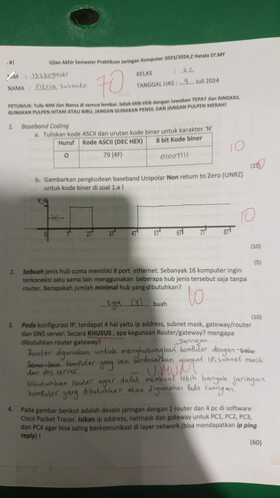 Ujian Akhir Semester Praktikum Jaringan Komputer 2023/2024,Z Herala ST.MT
70
KELAS :
NAMA :
TANGGAL UAS : 9 Juli 2024
PETUNJUK: Tulis NIM dan Nama di semua lembar. Jawab titik-titik dengan jawaban TEPAT dan RINGKAS.
GUNAKAN PULPEN HITAM ATAU BIRU. JANGAN GUNAKAN PENSIL DAN JANGAN PULPEN MERAH!
1. Baseband Coding
a. Tuliskan kode ASCII dan urutan kode biner untuk karakter
Huruf Kode ASCII (DEC HEX) 8 bit Kode Biner
O 79 (4F) 01001111
10
b. Gambarkan pengkodean baseband Unipolar Non return to Zero (UNRZ)
untuk kode biner di soal 1.a !
10
(10)
(5)
2. Sebuah jenis hub cuma memiliki 8 port ethernet. Sebanyak 16 komputer ingin
terkoneksi satu sama lain menggunakan beberapa hub jenis tersebut saja tanpa
router. Berapakah jumlah minimal hub yang dibutuhkan?
tiga (3) buah
10
(10)
3. Pada konfigurasi IP, terdapat 4 hal yaitu ip address, subnet mask, gateway/router
dan DNS server. Secara KHUSUS, apa kegunaan Router/gateway? mengapa
dibutuhkan router gateway?
Jaringan
Router digunakan untuk menghubungkan komputer dengan
komputer yang lain berdasarkan ip subnet mask
dan dns server.
UMUM
Dibutuhkan router agar dapat memuat lebih banyak jaringan
komputer yang dibutuhkan akan
4. Pada gambar berikut adalah desain jaringan dengan 1 router dan 4 pc di software
Cisco Packet Tracer. Isikan ip address, netmask dan gateway untuk PC1, PC2, PC3,
dan PC4 agar bisa saling berkomunikasi di layer network (bisa mendapatkan ip ping
reply) !
(60)